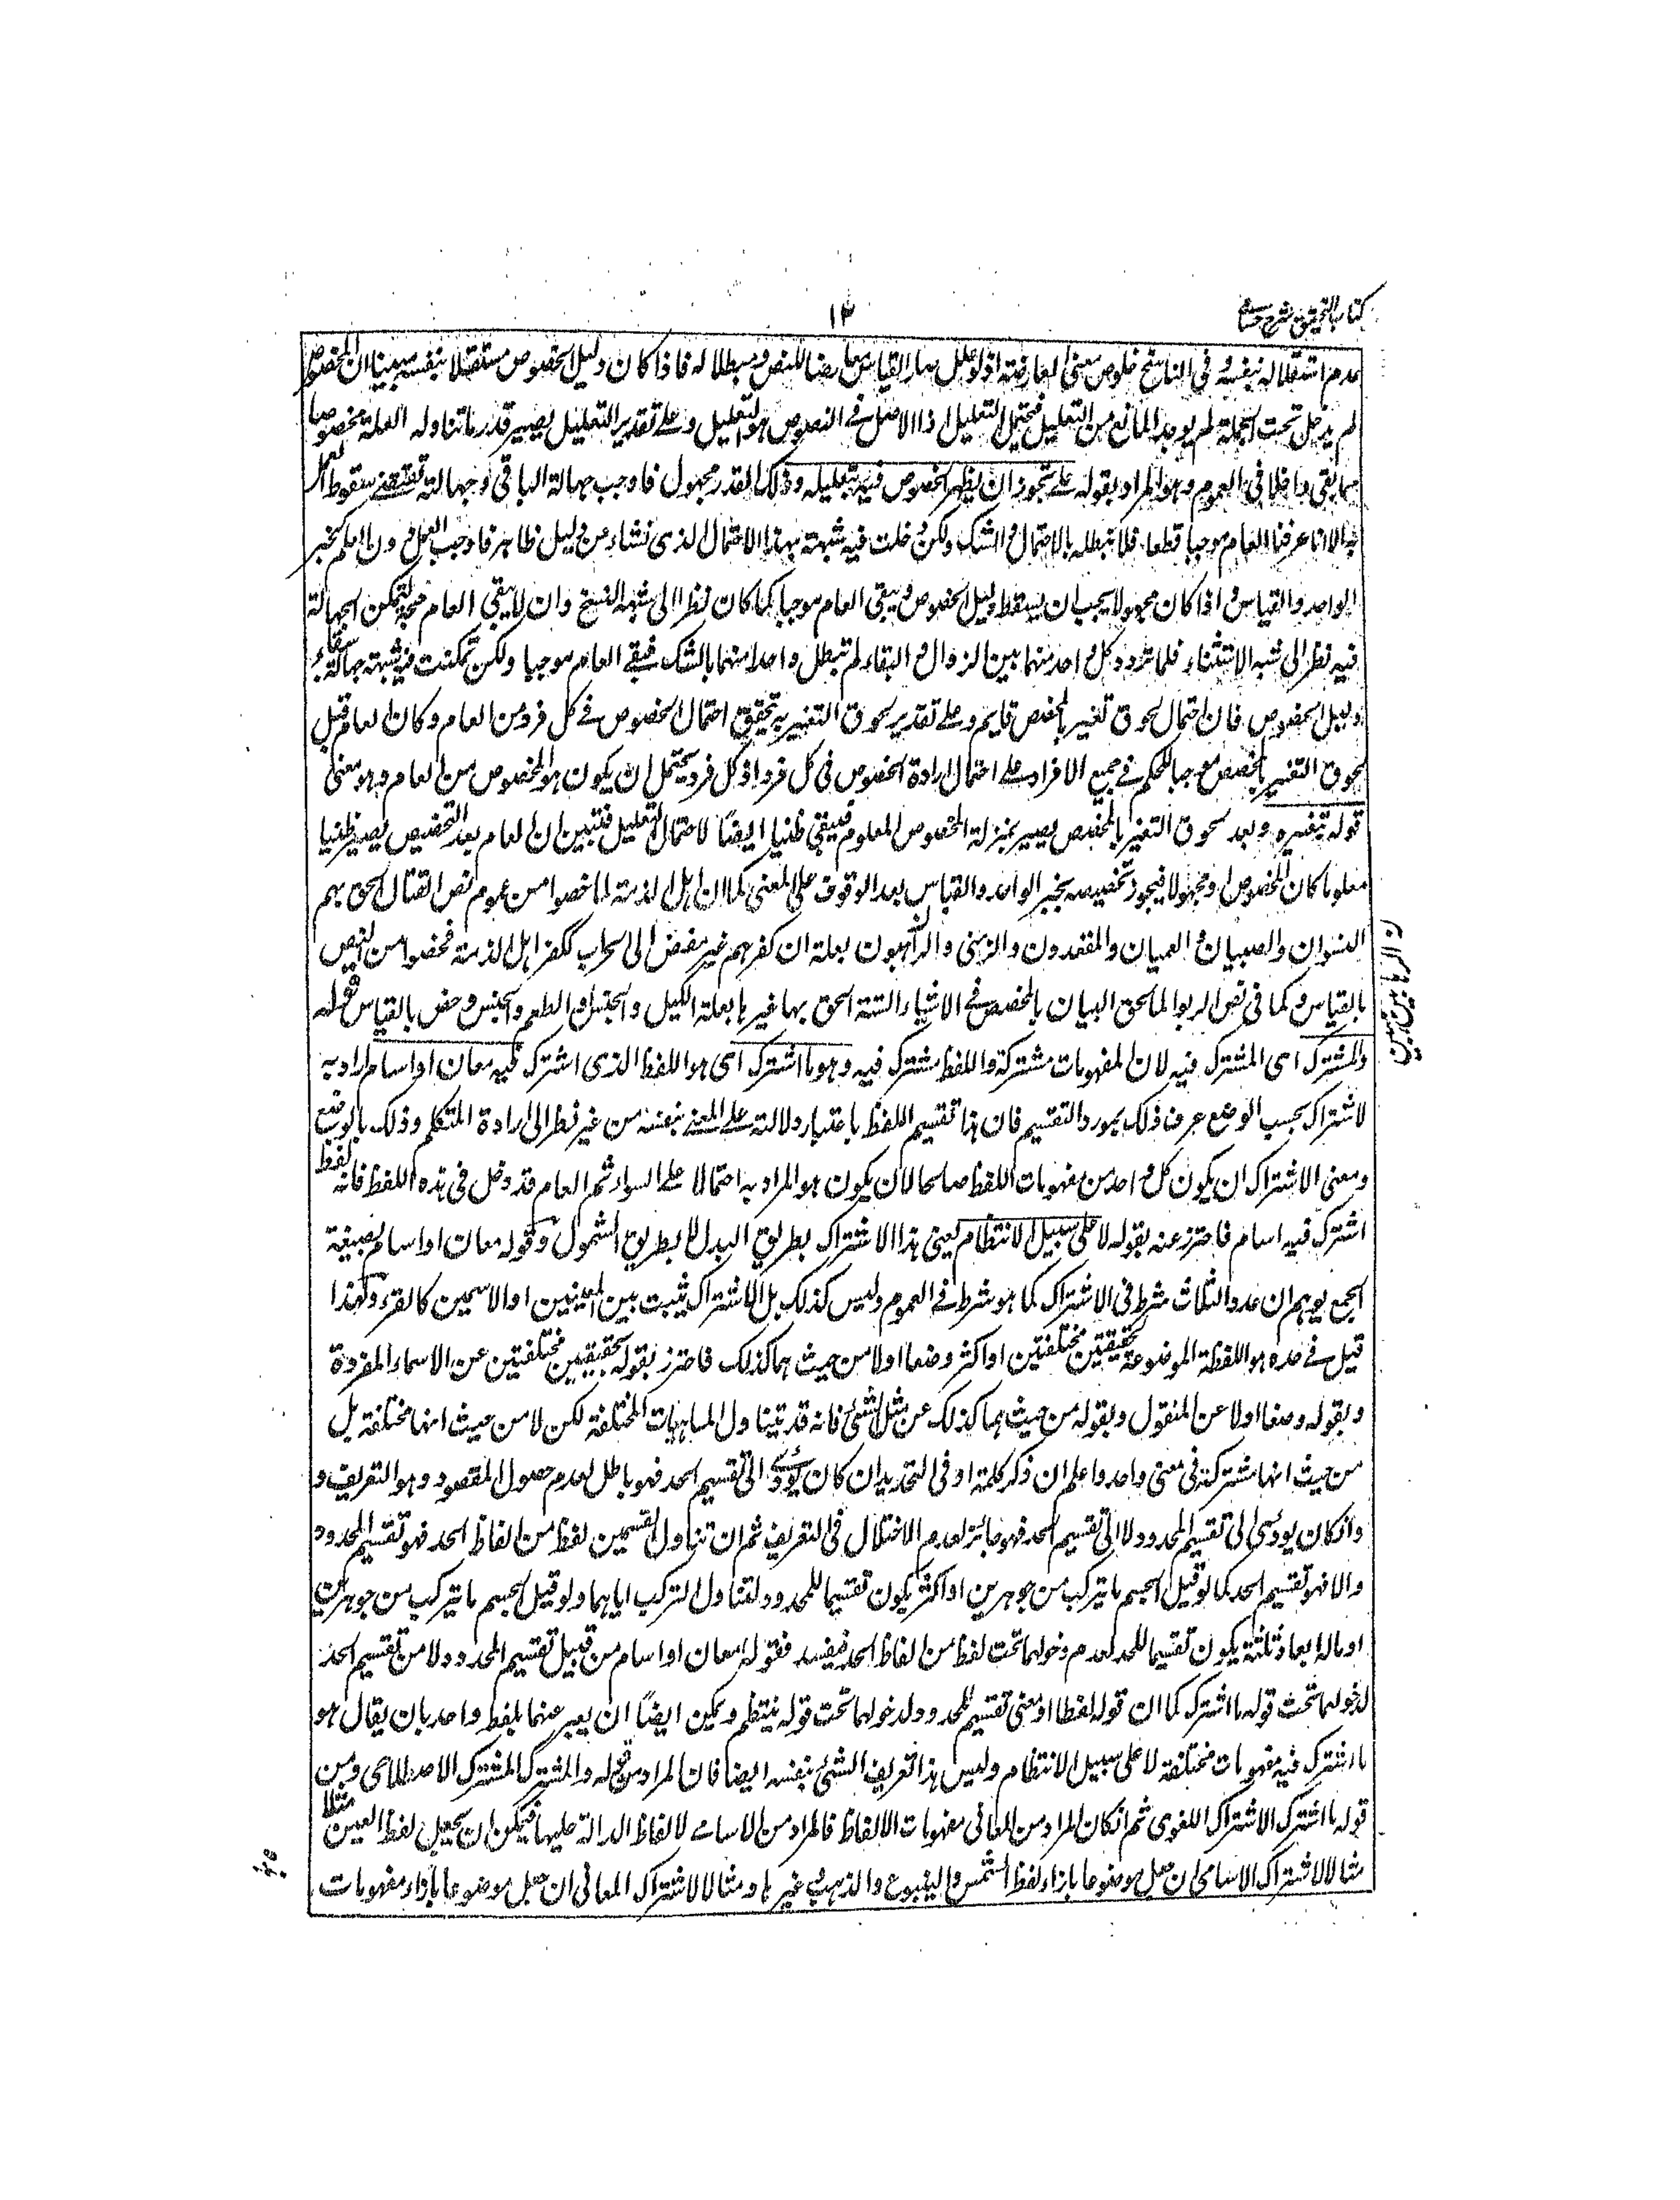 كتاب التحقيق شرح حسامى
١٣
عدم استقلاله بنفسه وفى الناسخ خلوص معنى المعارضة اذ لو علل صار القياس معارضا للنص ومبطلا له فاذا كان دليل الخصوص مستقلا بنفسه مبينا ان المخصوص
لم يدخل تحت الجملة لم يوجد المانع من التعليل فيحتمل التعليل اذ الاصل فى النصوص هو التعليل وعلى تقدير التعليل يصير قدر ما تناوله العلة مخصوصا
مما بقى داخلا فى العموم وهو المراد بقوله على تجوز ان يظهر الخصوص فيه بتعليله وذلك القدر مجهول فاوجب جهالة الباقى وجهالته تقتضى سقوط العمل
به الا انا عرفنا العام موجبا قطعا فلا نبطله بالاحتمال والشك ولكن دخلت فيه شبهة بهذا الاحتمال الذى نشاء عن دليل ظاهر فاوجب العمل دون العلم كخبر
الواحد والقياس واذا كان مجهولا يجب ان يسقط دليل الخصوص ويبقى العام موجبا كما كان نظرا الى شبه النسخ وان لا يبقى العام حجة لتمكن الجهالة
فيه نظرا الى شبه الاستثناء فلما تردد كل واحد منهما بين الزوال والبقاء لم تبطل واحدا منهما بالشك فبقى العام موجبا ولكن تمكنت فيه شبهة جهالة بقاء
دليل الخصوص فان احتمال لحوق تغير بالمخصص قايم وعلى تقدير لحوق التغير به تحقيق احتمال الخصوص فى كل فرد من العام وكان العام قبل
لحوق التغير بالمخصص موجبا للحكم فى جميع الافراد على احتمال ارادة الخصوص فى كل فرد اذ كل فرد يحتمل ان يكون هو المخصوص من العام وهو معنى
قوله بتفسيره وبعد لحوق التغير بالمخصص يصير بمنزلة المخصوص المعلوم فيبقى ظنيا ايضا لاحتمال التعليل فتبين ان العام بعد التخصيص يصير ظنيا
معلوما كان المخصوص او مجهولا فيجوز تخصيصه بخبر الواحد والقياس بعد الوقوف على المعنى كما ان اهل الذمة لما خصوا من عموم نص القتال الحق بهم
النسوان والصبيان والعميان والمقعدون والزمنى والراهبون بعلة ان كفرهم غير مفض الى الحراب ككفر اهل الذمة فخصوا من النص
بالقياس وكما فى نص الربوا لما لحق البيان بالمخصص فى الاشياء الستة الحق بها غيرها بعلة الكيل والجنس او الطعم والجنس وخص بالقياس قوله
والمشترك اى المشترك فيه لان المفهومات مشتركة واللفظ مشترك فيه وهو ما اشترك اى هو اللفظ الذى اشترك فيه معان او اسام اراد به
لاشتراك بحسب الوضع عرف ذلك بمورد التقسيم فان هذا تقسيم اللفظ باعتبار دلالته على المعنى بنفسه من غير نظر الى ارادة المتكلم وذلك بالوضع
ومعنى الاشتراك ان يكون كل واحد من مفهومات اللفظ صالحا لان يكون هو المراد به احتمالا على السواء ثم العام قد دخل فى هذه اللفظ فانه لفظ
اشترك فيه اسام فاحترز عنه بقوله لا على سبيل الانتظام يعنى هذا الاشتراك بطريق البدل لا بطريق الشمول وقوله معان او اسام بصيغة
الجمع يوهم ان عدد الثلاث شرط فى الاشتراك كما هو شرط فى العموم وليس كذلك بل الاشتراك يثبت بين المعنيين او الاسمين كالقرء ولهذا
قيل فى حده هو اللفظة الموضوعة لحقيقتين مختلفتين او اكثر وضعا اولا من حيث هما كذلك فاحترز بقوله لحقيقتين مختلفتين عن الاسماء المفردة
وبقوله وضعا اولا عن المنقول وبقوله من حيث هما كذلك عن مثل الشئ فانه قد يتناول الماهيات المختلفة لكن لا من حيث انها مختلفة بل
من حيث انها مشتركة فى معنى واحد واعلم ان ذكر كلمة او فى التحديد ان كان يؤدى الى تقسيم الحد فهو باطل لعدم حصول المقصود وهو التعريف و
وان كان يودى الى تقسيم المحدود لا الى تقسيم الحد فهو جائز لعدم الاختلال فى التعريف ثم ان تناول القسمين لفظ من الفاظ الحد فهو تقسيم المحدود
والا فهو تقسيم الحد كما لو قيل الجسم ما يتركب من جوهرين او اكثر يكون تقسيما للمحدود لتناول التركب اياهما ولو قيل الجسم ما يتركب من جوهرين
او ماله ابعاد ثلثة يكون تقسيما للحد لعدم دخولهما تحت لفظ من الفاظ الحد فيفسد فقوله معان او اسام من قبيل تقسيم المحدود لا من تقسيم الحد
لدخولهما تحت قوله ما اشترك كما ان قوله لفظا او معنى تقسيم للمحدود لدخولهما تحت قوله ينتظم ويمكن ايضا ان يعبر عنهما بلفظ واحد بان يقال هو
ما اشترك فيه مفهومات مختلفة لا على سبيل الانتظام وليس هذا تعريف الشئ بنفسه ايضا فان المراد من قوله والمشترك المشترك الاصطلاحى ومن
قوله ما اشترك الاشتراك اللغوى ثم ان كان المراد من المعانى مفهومات الالفاظ فالمراد من الاسامى الالفاظ الدالة عليها فيمكن ان يجعل لفظ العين مثلا
مثالا لاشتراك الاسامى ان جعل موضوعا بازاء لفظ الشمس والينبوع والذهب وغيرها ومثالا لاشتراك المعانى ان جعل موضوعا بازاء مفهومات